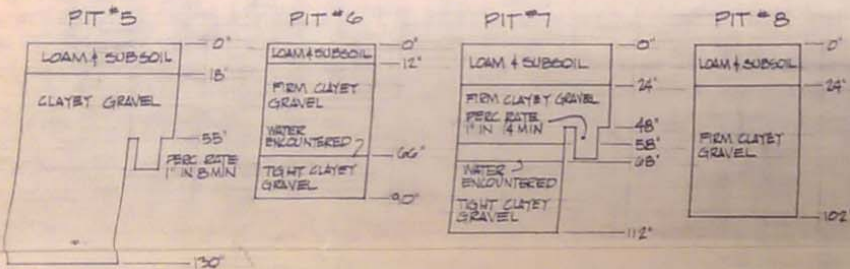 PIT #5
0"
LOAM & SUBSOIL
18"
CLAYEY GRAVEL
55"
PERC RATE
1" IN 8 MIN
130"
PIT #6
0"
LOAM & SUBSOIL
12"
FIRM CLAYEY
GRAVEL
WATER
ENCOUNTERED
66"
TIGHT CLAYEY
GRAVEL
90"
PIT #7
0"
LOAM & SUBSOIL
24"
FIRM CLAYEY GRAVEL
PERC RATE
1" IN 14 MIN
48"
58"
68"
WATER
ENCOUNTERED
TIGHT CLAYEY
GRAVEL
112"
PIT #8
0"
LOAM & SUBSOIL
24"
FIRM CLAYEY
GRAVEL
102